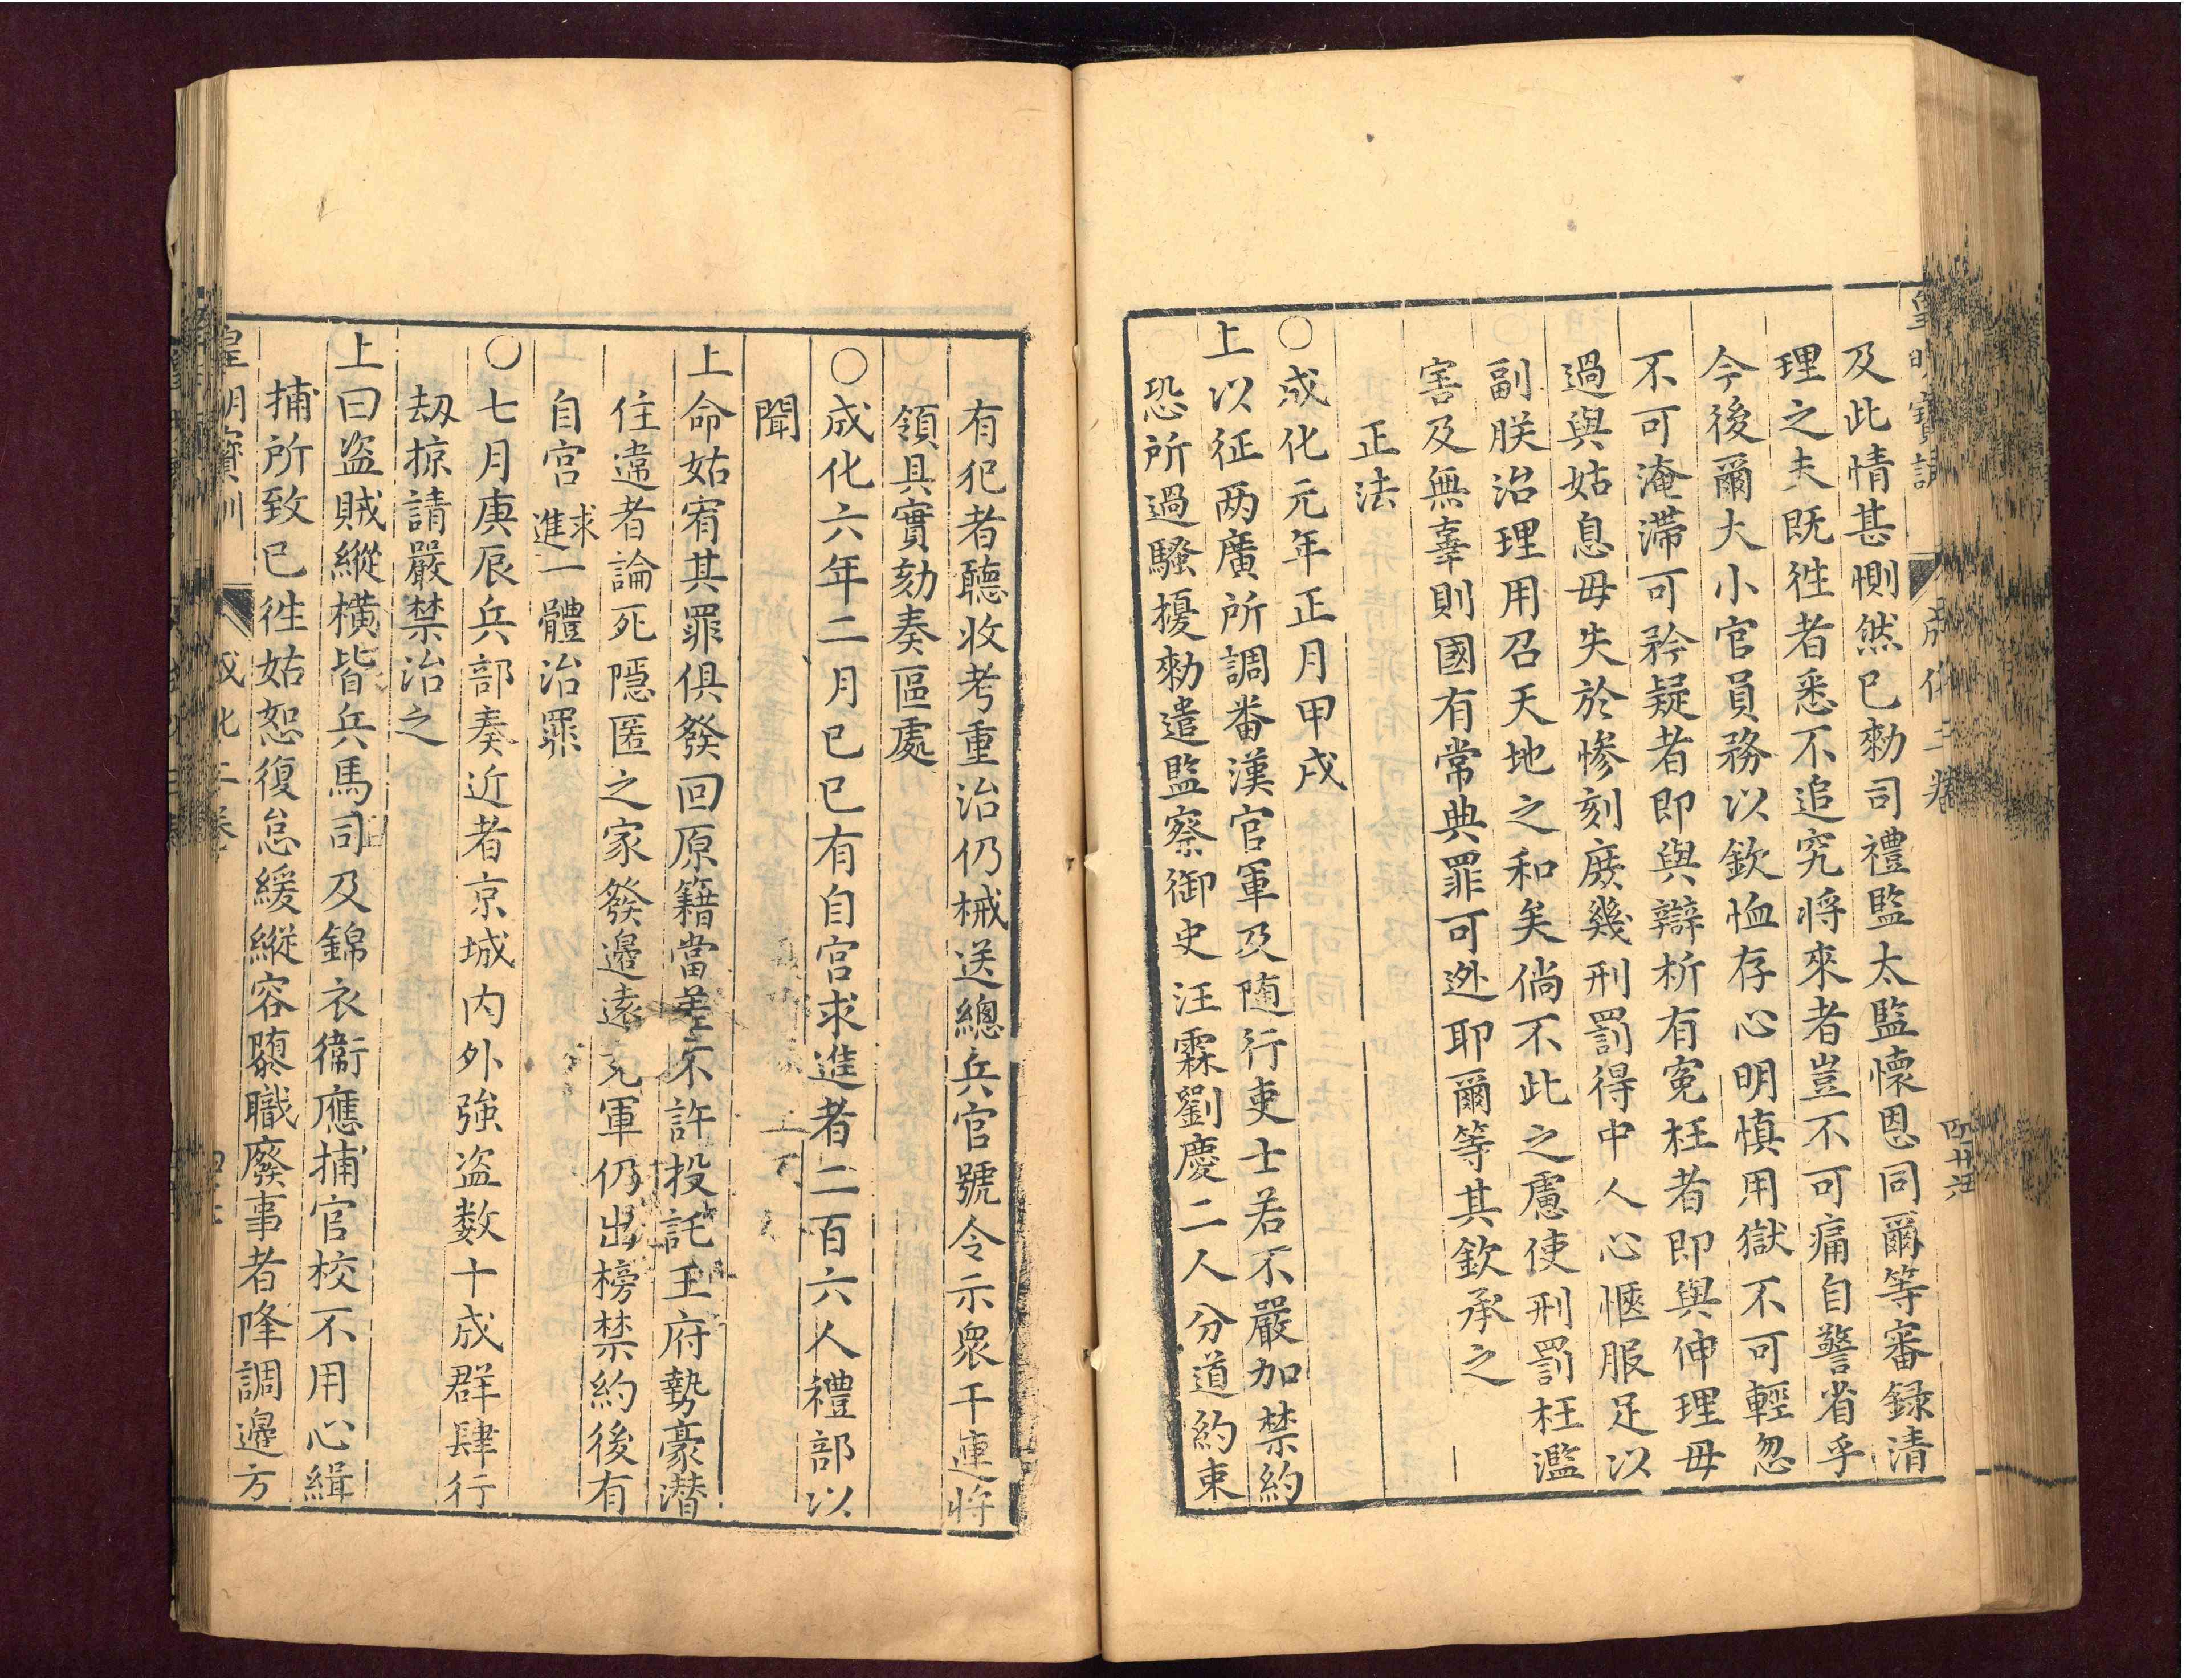 皇明寶訓 成化二卷
及此情甚惻然已勑司禮監太監懷恩同爾等審録清
理之夫既徃者悉不追究將來者豈不可痛自警省乎
今後爾大小官員務以欽恤存心明慎用獄不可輕忽
不可淹滯可矜疑者即與辯析有寃枉者即與伸理毋
過與姑息毋失於慘刻庶幾刑罰得中人心愜服足以
副朕治理用召天地之和矣倘不此之慮使刑罰枉濫
害及無辜則國有常典罪可迯耶爾等其欽承之
正法
○成化元年正月甲戌
上以征两廣所調番漢官軍及随行吏士若不嚴加禁約
恐所過騷擾勑遣監察御史汪霖劉慶二人分道約束
有犯者聽收考重治仍械送總兵官號令示衆干連將
領具實劾奏區處
○成化六年二月己巳有自宮求進者二百六人禮部以
聞
上命姑宥其罪俱發回原籍當差不許投託王府勢豪潜
住違者論死隱匿之家發邉遠充軍仍出榜禁約後有
自宮求進一體治罪
○七月庚辰兵部奏近者京城内外強盗数十成群肆行
刼掠請嚴禁治之
上曰盗賊縱橫皆兵馬司及錦衣衞應捕官校不用心緝
捕所致已徃姑恕復怠緩縱容隳職廢事者降調邉方
皇明寶訓 成化二卷